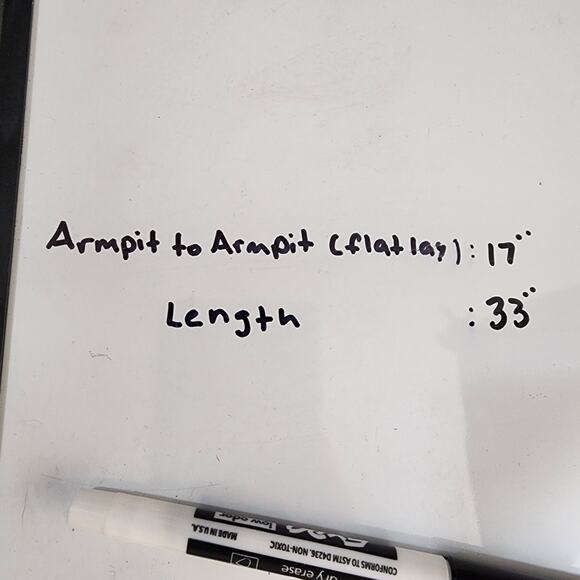 Armpit to Armpit (flat lay) : 17"
Length : 33"
EXPO low odor
MADE IN U.S.A.
CONFORMS TO ASTM D4236, NON-TOXIC
dry erase